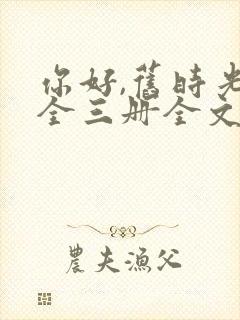 你好,舊時光
全三册全文
農夫漁父